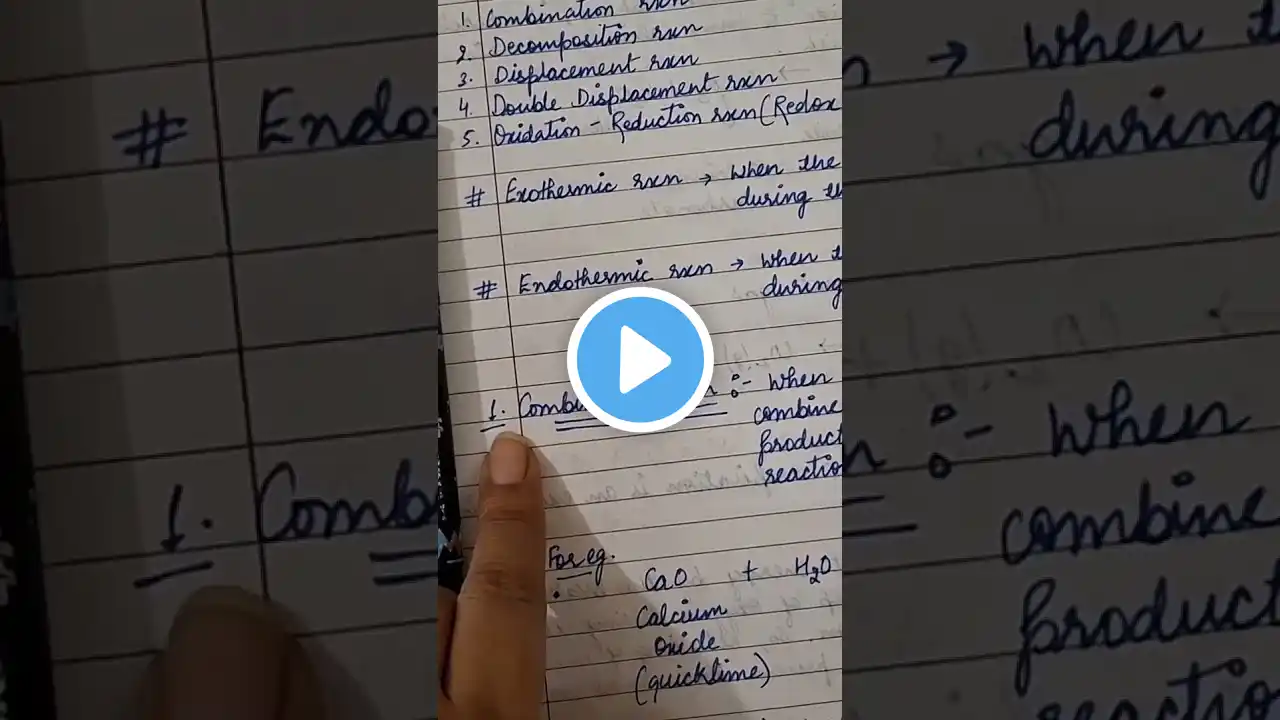 1. Combination rxn
2. Decomposition rxn
3. Displacement rxn
4. Double Displacement rxn
5. Oxidation - Reduction rxn (Redox
# Exothermic rxn → when the
during th
# Endothermic rxn → when t
during
1. Comb :- when
combine
product
reaction
For eg.
CaO + H₂O
Calcium
oxide
(quicklime)